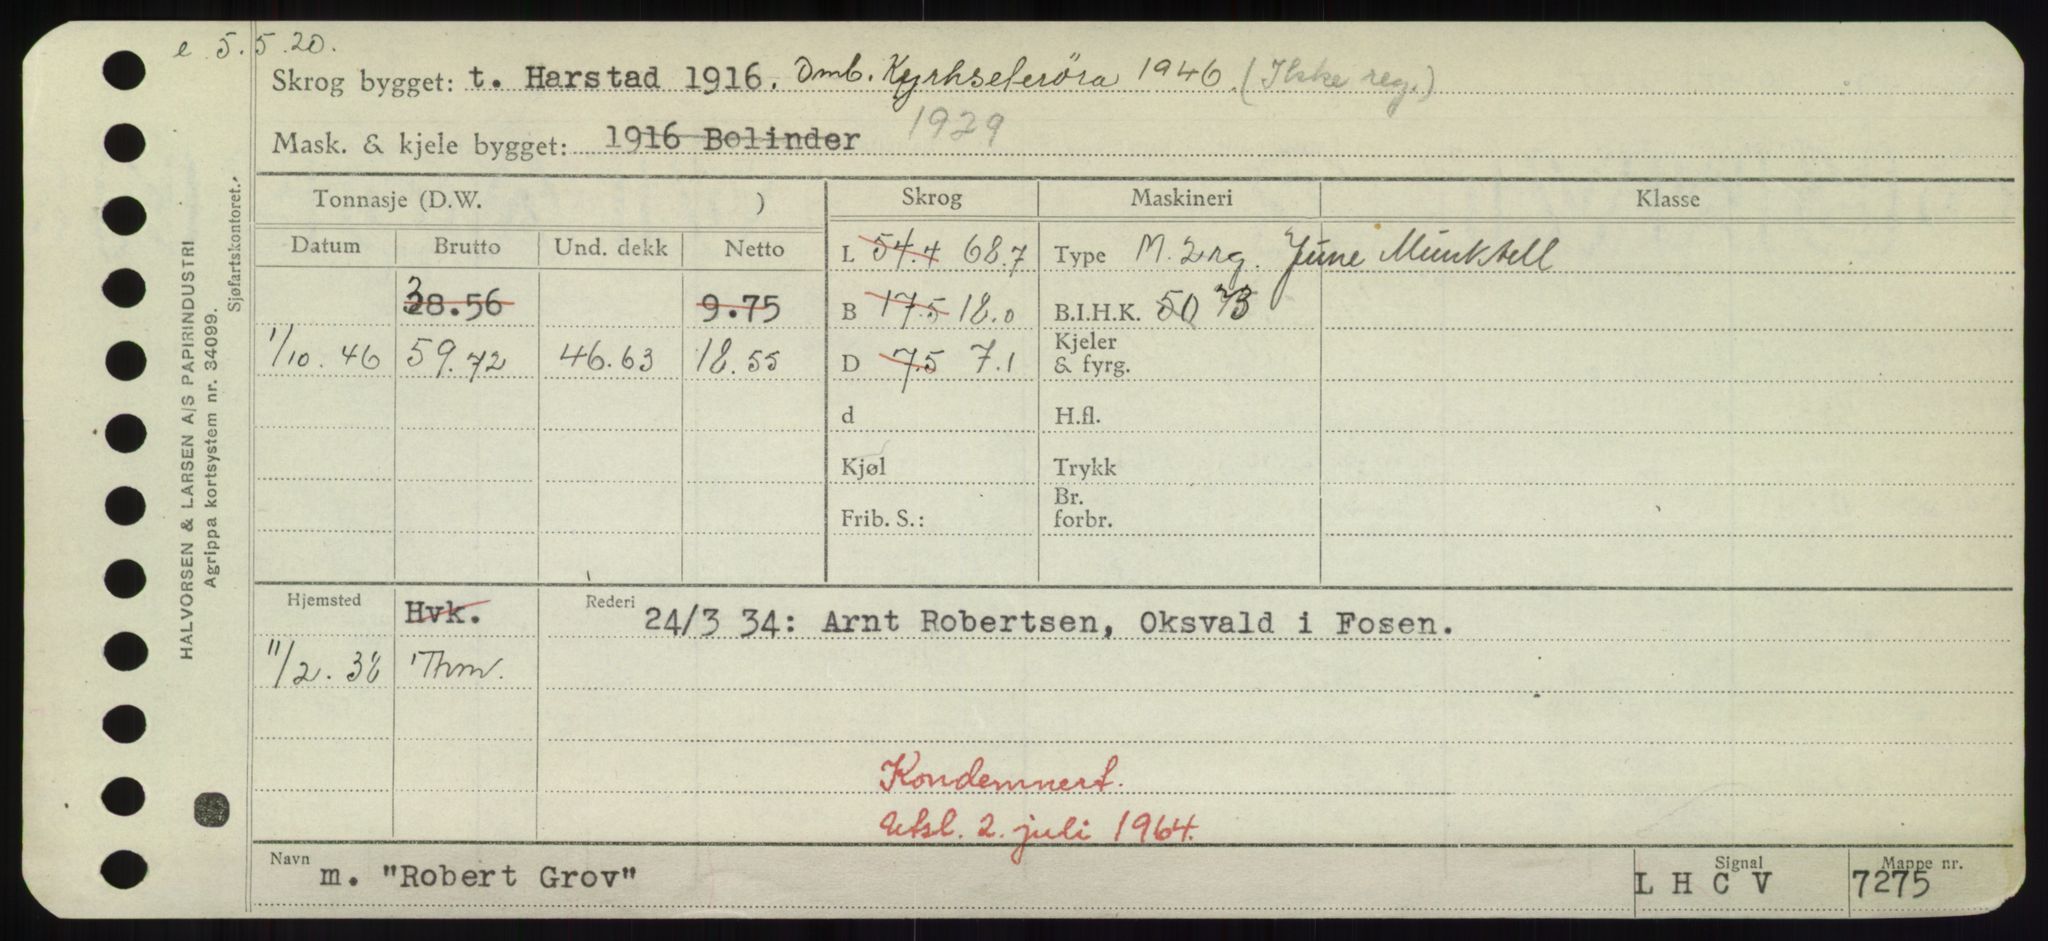 e 5.5.20.
Skrog bygget: t. Harstad 1916. Omb. Kyrkseterøra 1946. (Ikke reg.)
Mask. & kjele bygget: 1916 Bolinder 1929
Tonnasje (D.W. ) Skrog Maskineri Klasse
Datum Brutto Und. dekk Netto
L 54.4 68.7 Type M. 2 rg. June Munktell
28.56 3 9.75 B 17.5 18.0 B.I.H.K. 50 73
1/10. 46 59.72 46.63 18.55 D 7.5 7.1 Kjeler & fyrg.
d H.fl.
Kjøl Trykk
Frib. S.: Br. forbr.
Hjemsted Hvk. Rederi 24/3 34: Arnt Robertsen, Oksvald i Fosen.
11/2. 38 Thm.
Kondemnert.
Utsl. 2. juli 1964.
Navn m. "Robert Grov" Signal L H C V Mappe nr. 7275
HALVORSEN & LARSEN A/S PAPIRINDUSTRI
Agrippa kortsystem nr. 34099.
Sjøfartskontoret.